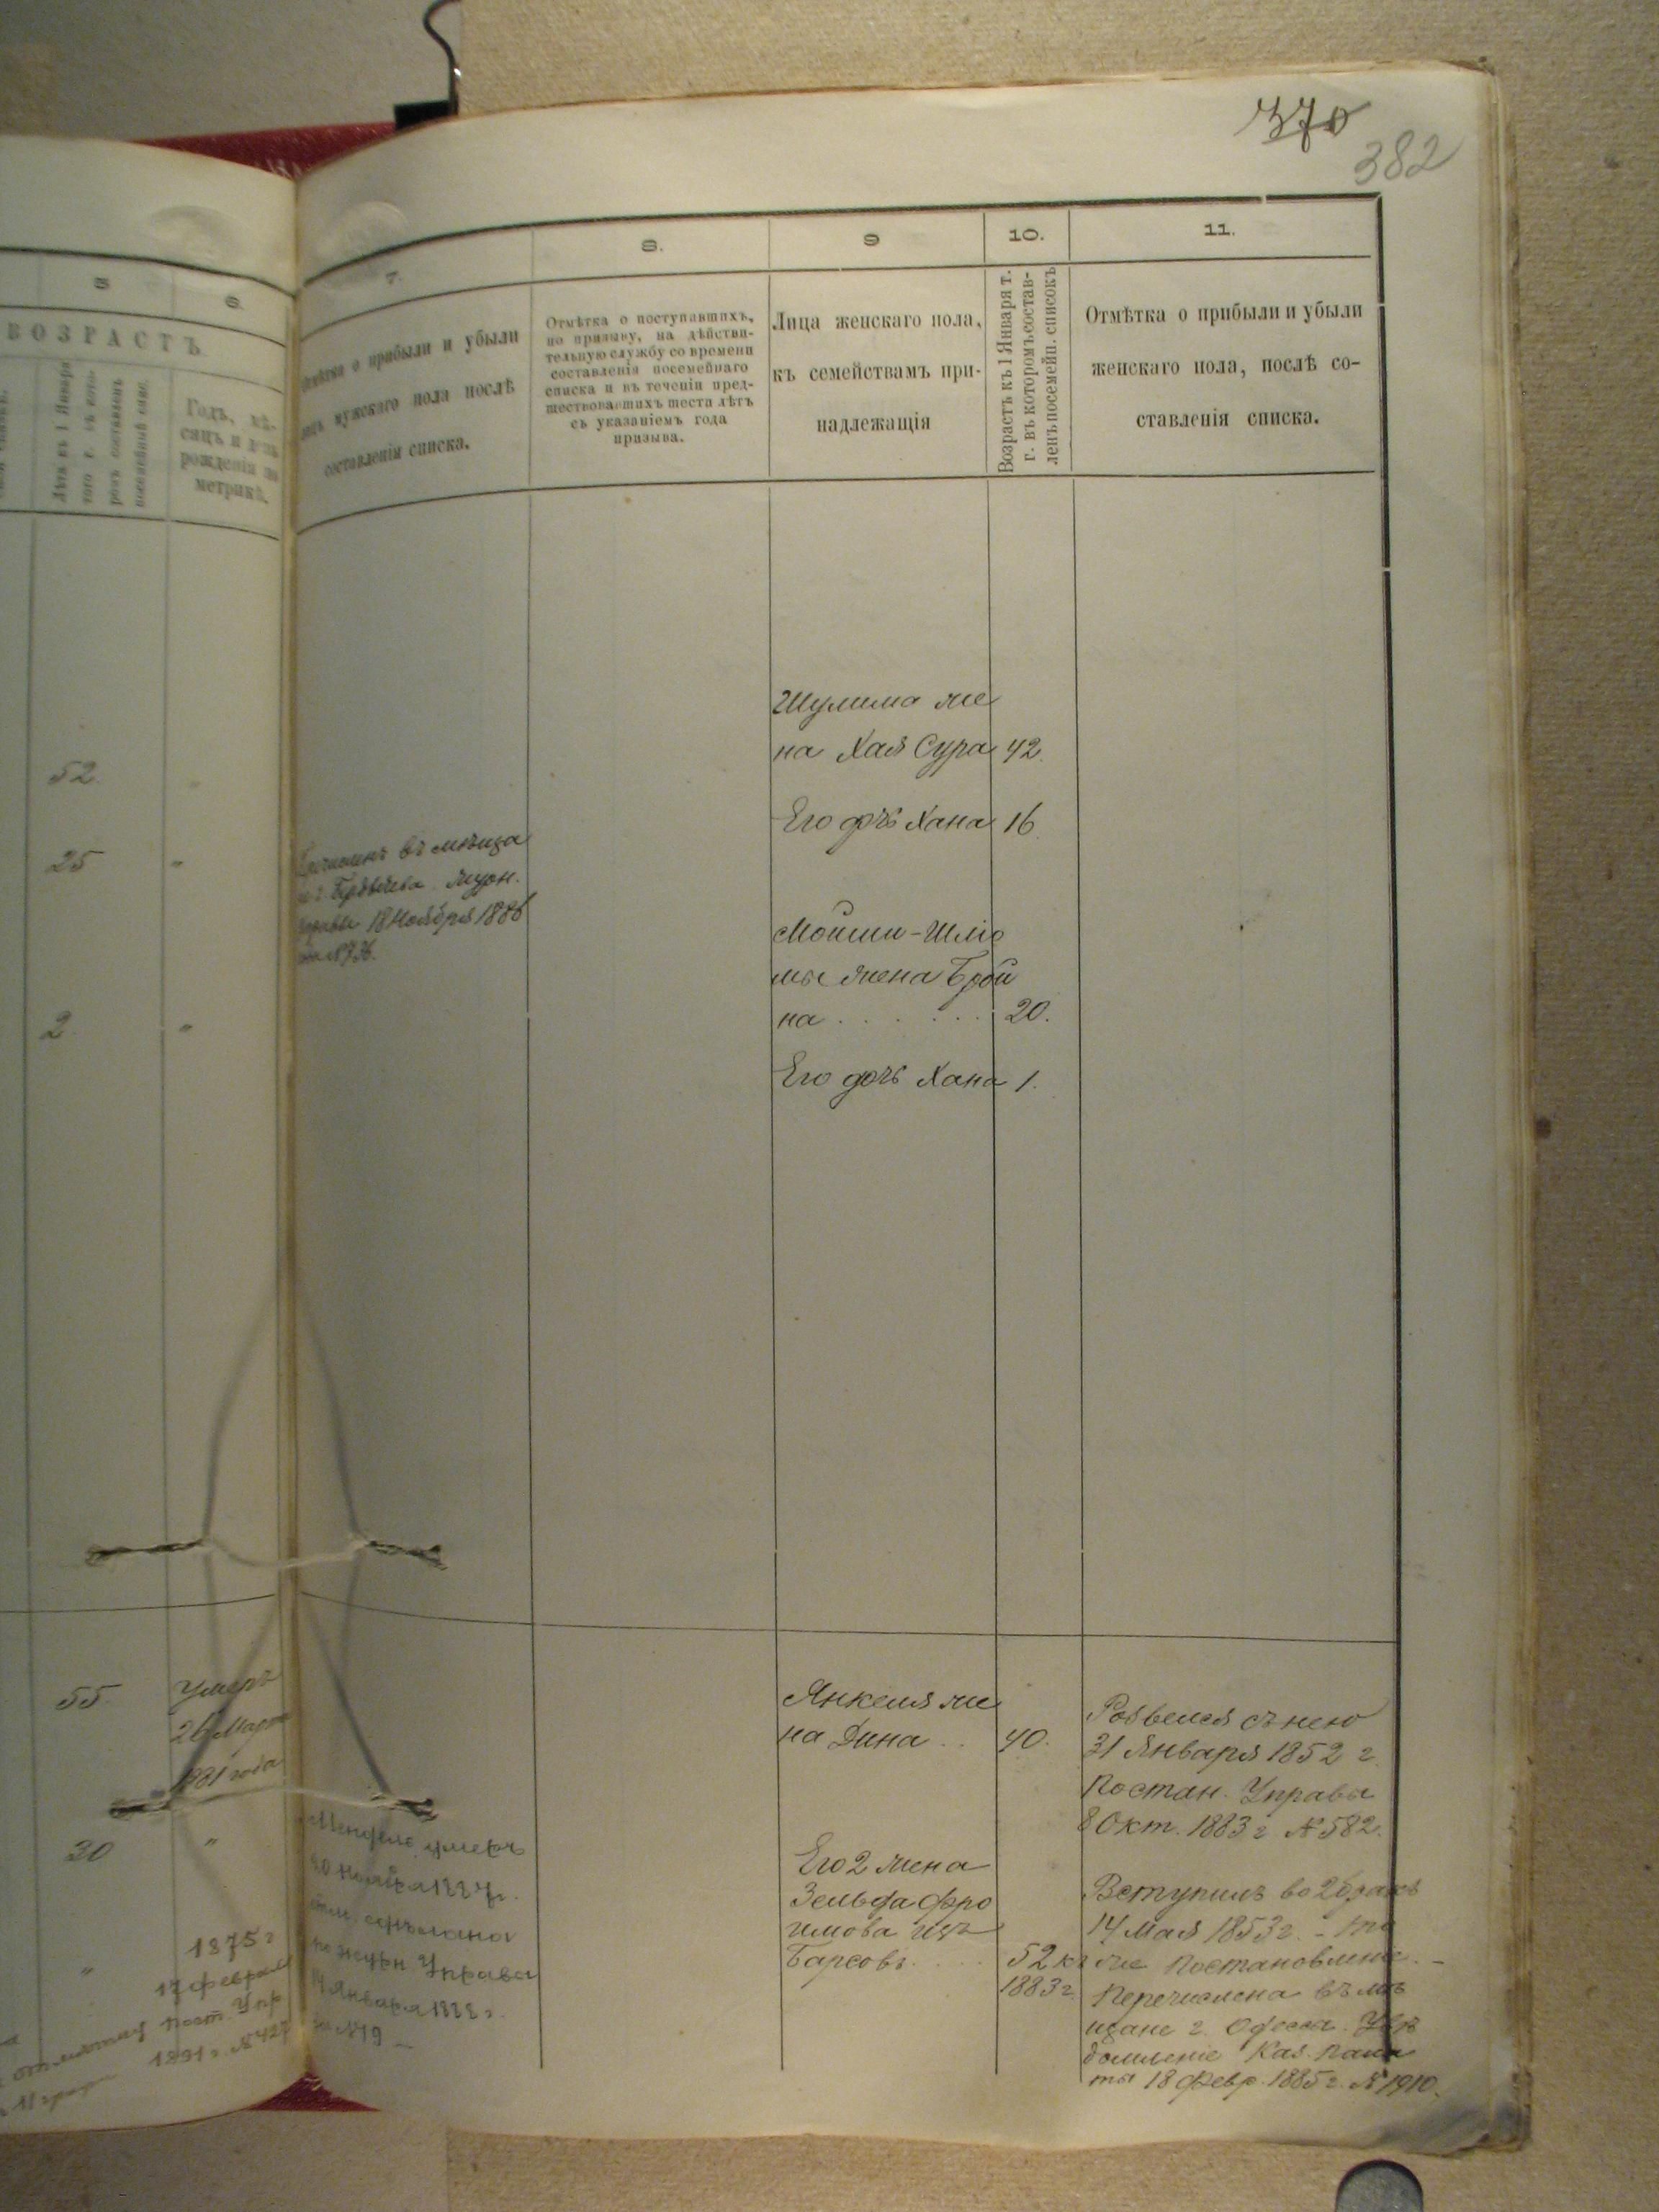 370
382
5
6.
ВОЗРАСТЪ
Лѣта къ 1 Января
того г. въ кото-
ромъ составленъ
посемейный спис.
Годъ, мѣ-
сяцъ и день
рожденія по
метрикѣ.
52.
25
"
2.
"
55.
Умеръ
26 Марта
1881 года
30
"
"
1875 г
17 Февраля
Пост. Упр
1891 г. № 427
7.
Отмѣтка о прибыли и убыли
лицъ мужскаго пола послѣ
составленія списка.
въ мѣщане
г. Бердичева журн.
Управы 18 Ноября 1886
за № 736.
умеръ
по журн Управы
14 Января 1888 г.
за № 19
8.
Отмѣтка о поступавшихъ,
по призыву, на дѣйстви-
тельную службу со времени
составленія посемейнаго
списка и въ теченіи пред-
шествовавшихъ шести лѣтъ
съ указаніемъ года
призыва.
9
Лица женскаго пола,
къ семействамъ при-
надлежащія
Шулима же
на Хая Сура
Его дочь Хана
Мойши-Шліо
мы жена Брой
на . . . . . .
Его дочь Хана
Янкеля же
на Дина . .
Его 2 жена
Зельда Фро
имова изъ
Барсовъ. . . .
10.
Возрастъ къ 1 Января т.
г. въ которомъ состав-
ленъ посемейн. списокъ
42.
16
20.
1.
40.
52 къ
1883 г.
11.
Отмѣтка о прибыли и убыли
женскаго пола, послѣ со-
ставленія списка.
Развелся съ нею
31 Января 1852 г.
Постан. Управы
8 Окт. 1883 г № 582.
Вступилъ во 2 бракъ
14 Мая 1853 г. - по
же Постановленіе. -
Перечислена въ мѣ
щане г. Одесса. Увѣ
домленіе Каз. Пала
ты 18 Февр. 1885 г. № 1910.